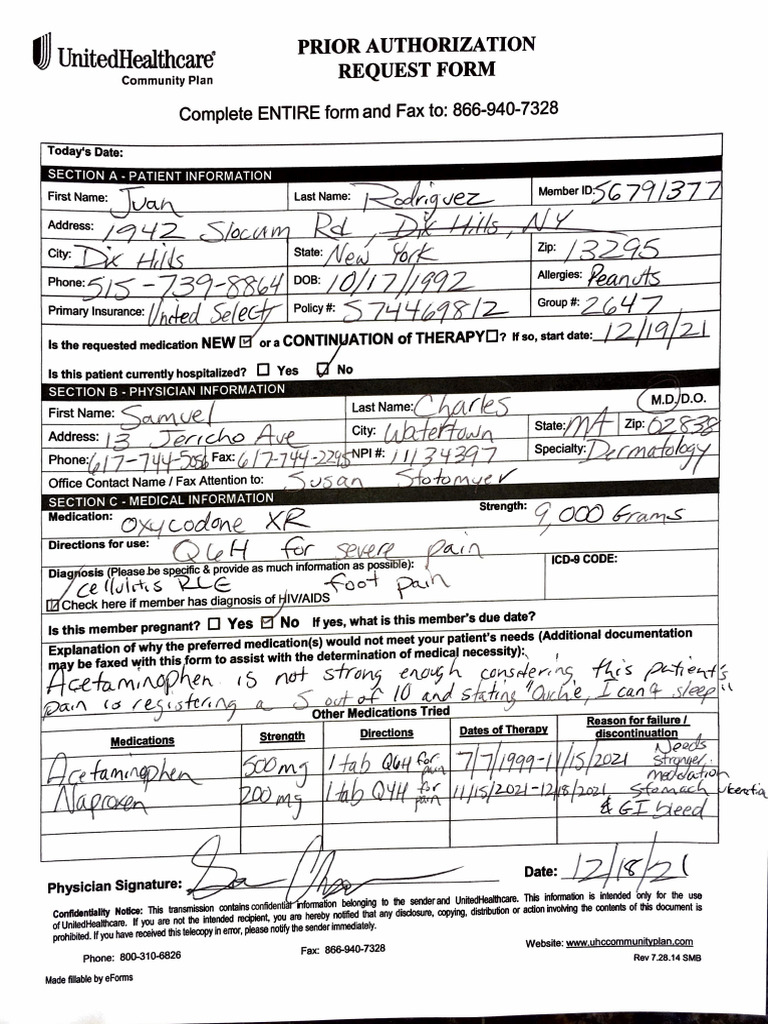 UnitedHealthcare®
Community Plan
PRIOR AUTHORIZATION
REQUEST FORM
Complete ENTIRE form and Fax to: 866-940-7328
Today's Date:
SECTION A - PATIENT INFORMATION
First Name: Juan Last Name: Rodriguez Member ID: 56791377
Address: 1942 Slocum Rd, Dix Hills, NY
City: Dix Hills State: New York Zip: 13295
Phone: 515-739-8864 DOB: 10/17/1992 Allergies: Peanuts
Primary Insurance: United Select Policy #: 574469812 Group #: 2647
Is the requested medication NEW ☑ or a CONTINUATION of THERAPY ☐? If so, start date: 12/19/21
Is this patient currently hospitalized? ☐ Yes ☑ No
SECTION B - PHYSICIAN INFORMATION
First Name: Samuel Last Name: Charles M.D./D.O.
Address: 13 Jericho Ave City: Watertown State: MA Zip: 02838
Phone: 617-744-5056 Fax: 617-744-2245 NPI #: 11134397 Specialty: Dermatology
Office Contact Name / Fax Attention to: Susan Stotomyer
SECTION C - MEDICAL INFORMATION
Medication: Oxycodone XR Strength: 9,000 Grams
Directions for use: Q6H for severe pain
Diagnosis (Please be specific & provide as much information as possible): ICD-9 CODE:
Cellulitis RLE foot pain
☑ Check here if member has diagnosis of HIV/AIDS
Is this member pregnant? ☐ Yes ☑ No If yes, what is this member's due date?
Explanation of why the preferred medication(s) would not meet your patient's needs (Additional documentation
may be faxed with this form to assist with the determination of medical necessity):
Acetaminophen is not strong enough considering this patient's
pain is registering a 5 out of 10 and stating "Ouchie, I can't sleep"
Other Medications Tried
Medications Strength Directions Dates of Therapy Reason for failure / discontinuation
Acetaminophen 500mg 1 tab Q6H for pain 7/7/1999-11/15/2021 Needs stronger medication
Naproxen 200mg 1 tab Q4H for pain 11/15/2021-12/18/2021 Stomach & GI bleed
Physician Signature: Date: 12/18/21
Confidentiality Notice: This transmission contains confidential information belonging to the sender and UnitedHealthcare. This information is intended only for the use
of UnitedHealthcare. If you are not the intended recipient, you are hereby notified that any disclosure, copying, distribution or action involving the contents of this document is
prohibited. If you have received this telecopy in error, please notify the sender immediately.
Phone: 800-310-6826 Fax: 866-940-7328 Website: www.uhccommunityplan.com
Rev 7.28.14 SMB
Made fillable by eForms